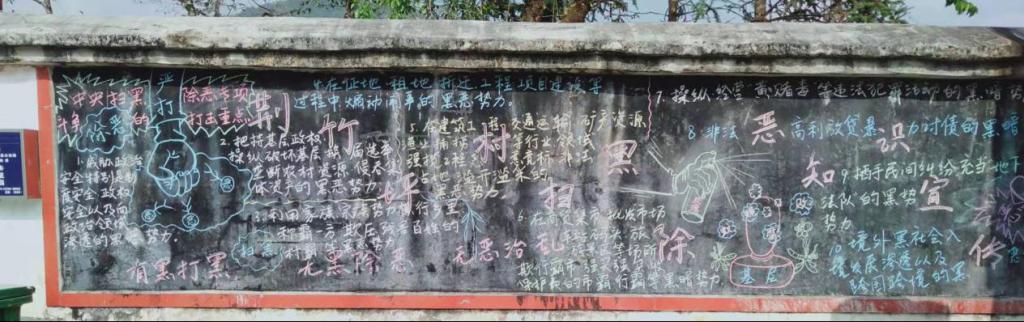 中央扫黑
斗争
严打
除恶专项
打击重点
1.威胁政治
安全特别是制
度安全、政权
安全以及向
政治领域
渗透的黑恶势力。
2.把持基层政权
操纵破坏基层换届选举
垄断农村资源 侵吞集
体资产的黑恶势力
3.利用家族宗族势力横行乡里
称霸一方欺压残害百姓的
4.在征地 租地 拆迁 工程项目建设等
过程中煽动闹事的黑恶势力。
5.在建筑工程 交通运输 矿产资源
渔业捕捞等行业领域
强揽工程 恶意竞标 非法
占地 滥开滥采的
黑恶势力
6.在商贸集市 批发市场
车站码头 旅游
景区等场所
欺行霸市 强买强卖
保护费的市霸 行霸等黑恶势力
7.操纵 经营 黄赌毒 等违法犯罪活动的黑恶势
8.非法 高利放贷暴力讨债的黑恶
9.插手民间纠纷充当地下
执法队的黑恶势力
10.境外黑社会入
境发展渗透以及
跨国跨境的黑
荆竹坪村扫黑除恶知识宣传
有黑打黑 无黑除恶 无恶治乱
基层